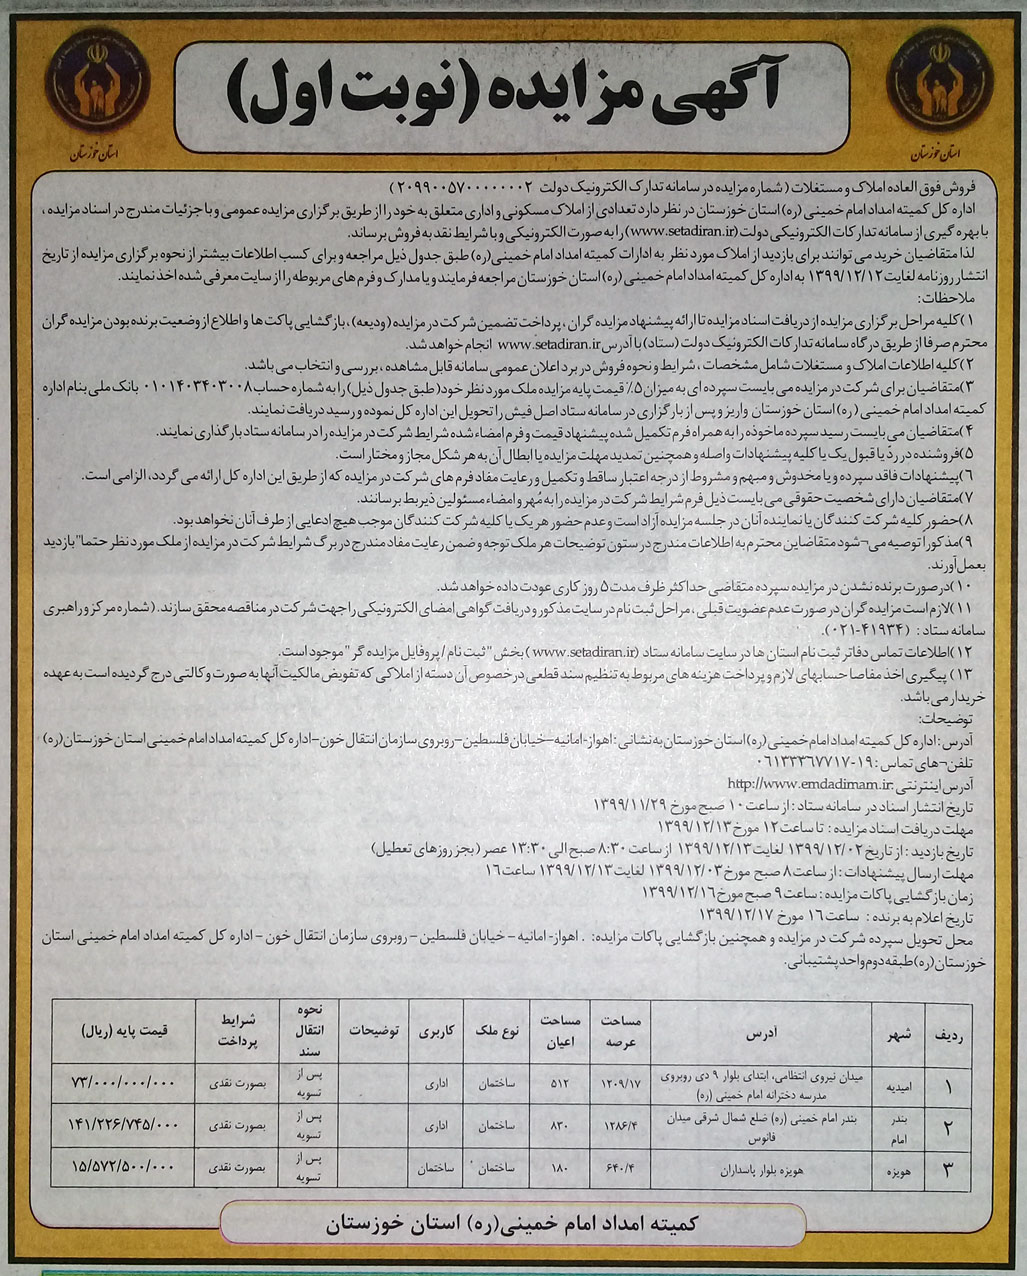 آگهی مزایده (نوبت اول)
استان خوزستان
استان خوزستان
فروش فوق العاده املاک و مستغلات ( شماره مزایده در سامانه تدارک الکترونیک دولت ۲۰۹۹۰۰۵۷۰۰۰۰۰۰۰۲ )
اداره کل کمیته امداد امام خمینی (ره) استان خوزستان در نظر دارد تعدادی از املاک مسکونی و اداری متعلق به خود را از طریق برگزاری مزایده عمومی و با جزئیات مندرج در اسناد مزایده ،
با بهره گیری از سامانه تدارکات الکترونیکی دولت (www.setadiran.ir) را به صورت الکترونیکی و با شرایط نقد به فروش برساند.
لذا متقاضیان خرید می توانند برای بازدید از املاک مورد نظر به ادارات کمیته امداد امام خمینی (ره) طبق جدول ذیل مراجعه و برای کسب اطلاعات بیشتر از نحوه برگزاری مزایده از تاریخ
انتشار روزنامه لغایت ۱۳۹۹/۱۲/۱۲ به اداره کل کمیته امداد امام خمینی (ره) استان خوزستان مراجعه فرمایند و یا مدارک و فرم های مربوطه را از سایت معرفی شده اخذ نمایند.
ملاحظات:
۱) کلیه مراحل برگزاری مزایده از دریافت اسناد مزایده تا ارائه پیشنهاد مزایده گران ، پرداخت تضمین شرکت در مزایده (ودیعه)، بازگشایی پاکت ها و اطلاع از وضعیت برنده بودن مزایده گران
محترم صرفا از طریق درگاه سامانه تدارکات الکترونیک دولت (ستاد) با آدرس www.setadiran.ir انجام خواهد شد.
۲) کلیه اطلاعات املاک و مستغلات شامل مشخصات ، شرایط و نحوه فروش در برد اعلان عمومی سامانه قابل مشاهده ، بررسی و انتخاب می باشد.
۳) متقاضیان برای شرکت در مزایده می بایست سپرده ای به میزان ۵٪ قیمت پایه مزایده ملک مورد نظر خود (طبق جدول ذیل) را به شماره حساب ۰۱۰۱۴۰۳۴۰۳۰۰۸ بانک ملی بنام اداره
کمیته امداد امام خمینی (ره) استان خوزستان واریز و پس از بارگزاری در سامانه ستاد اصل فیش را تحویل این اداره کل نموده و رسید دریافت نمایند.
۴) متقاضیان می بایست رسید سپرده ماخوذه را به همراه فرم تکمیل شده پیشنهاد قیمت و فرم امضاء شده شرایط شرکت در مزایده را در سامانه ستاد بارگذاری نمایند.
۵) فروشنده در ردّ یا قبول یک یا کلیه پیشنهادات واصله و همچنین تمدید مهلت مزایده یا ابطال آن به هر شکل مجاز و مختار است.
۶) پیشنهادات فاقد سپرده و یا مخدوش و مبهم و مشروط از درجه اعتبار ساقط و تکمیل و رعایت مفاد فرم های شرکت در مزایده که از طریق این اداره کل ارائه می گردد، الزامی است.
۷) متقاضیان دارای شخصیت حقوقی می بایست ذیل فرم شرایط شرکت در مزایده را به مُهر و امضاء مسئولین ذیربط برسانند.
۸) حضور کلیه شرکت کنندگان یا نماینده آنان در جلسه مزایده آزاد است و عدم حضور هر یک یا کلیه شرکت کنندگان موجب هیچ ادعایی از طرف آنان نخواهد بود.
۹) مذکورا توصیه می¬شود متقاضاین محترم به اطلاعات مندرج در ستون توضیحات هر ملک توجه و ضمن رعایت مفاد مندرج در برگ شرایط شرکت در مزایده از ملک مورد نظر حتما" بازدید
بعمل آورند.
۱۰) در صورت برنده نشدن در مزایده سپرده متقاضی حداکثر ظرف مدت ۵ روز کاری عودت داده خواهد شد.
۱۱) لازم است مزایده گران در صورت عدم عضویت قبلی ، مراحل ثبت نام در سایت مذکور و دریافت گواهی امضای الکترونیکی را جهت شرکت در مناقصه محقق سازند. (شماره مرکز و راهبری
سامانه ستاد : (۴۱۹۳۴-۰۲۱).
۱۲) اطلاعات تماس دفاتر ثبت نام استان ها در سایت سامانه ستاد (www.setadiran.ir) بخش "ثبت نام / پروفایل مزایده گر" موجود است.
۱۳) پیگیری اخذ مفاصا حسابهای لازم و پرداخت هزینه های مربوط به تنظیم سند قطعی در خصوص آن دسته از املاکی که تفویض مالکیت آنها به صورت وکالتی درج گردیده است به عهده
خریدار می باشد.
توضیحات:
آدرس : اداره کل کمیته امداد امام خمینی (ره) استان خوزستان به نشانی : اهواز-امانیه-خیابان فلسطین-روبروی سازمان انتقال خون-اداره کل کمیته امداد امام خمینی استان خوزستان (ره)
تلفن¬های تماس : ۱۹-۰۶۱۳۳۳۶۷۷۱۷
آدرس اینترنتی : http://www.emdadimam.ir
تاریخ انتشار اسناد در سامانه ستاد : از ساعت ۱۰ صبح مورخ ۱۳۹۹/۱۱/۲۹
مهلت دریافت اسناد مزایده : تا ساعت ۱۲ مورخ ۱۳۹۹/۱۲/۱۳
تاریخ بازدید : از تاریخ ۱۳۹۹/۱۲/۰۲ لغایت ۱۳۹۹/۱۲/۱۳ از ساعت ۸:۳۰ صبح الی ۱۳:۳۰ عصر (بجز روزهای تعطیل)
مهلت ارسال پیشنهادات : از ساعت ۸ صبح مورخ ۱۳۹۹/۱۲/۰۳ لغایت ۱۳۹۹/۱۲/۱۳ ساعت ۱۶
زمان بازگشایی پاکات مزایده : ساعت ۹ صبح مورخ ۱۳۹۹/۱۲/۱۶
تاریخ اعلام به برنده : ساعت ۱۶ مورخ ۱۳۹۹/۱۲/۱۷
محل تحویل سپرده شرکت در مزایده و همچنین بازگشایی پاکات مزایده: . اهواز- امانیه - خیابان فلسطین - روبروی سازمان انتقال خون - اداره کل کمیته امداد امام خمینی استان
خوزستان (ره) طبقه دوم واحد پشتیبانی.
ردیف شهر آدرس مساحت عرصه مساحت اعیان نوع ملک کاربری توضیحات نحوه انتقال سند شرایط پرداخت قیمت پایه (ریال)
۱ امیدیه میدان نیروی انتظامی، ابتدای بلوار ۹ دی روبروی مدرسه دخترانه امام خمینی (ره) ۱۲۰۹/۱۷ ۵۱۲ ساختمان اداری پس از تسویه بصورت نقدی ۷۳/۰۰۰/۰۰۰/۰۰۰
۲ بندر امام بندر امام خمینی (ره) ضلع شمال شرقی میدان فانوس ۱۲۸۶/۴ ۸۳۰ ساختمان اداری پس از تسویه بصورت نقدی ۱۴۱/۲۲۶/۷۴۵/۰۰۰
۳ هویزه هویزه بلوار پاسداران ۶۴۰/۴ ۱۸۰ ساختمان ساختمان پس از تسویه بصورت نقدی ۱۵/۵۷۲/۵۰۰/۰۰۰
کمیته امداد امام خمینی (ره) استان خوزستان